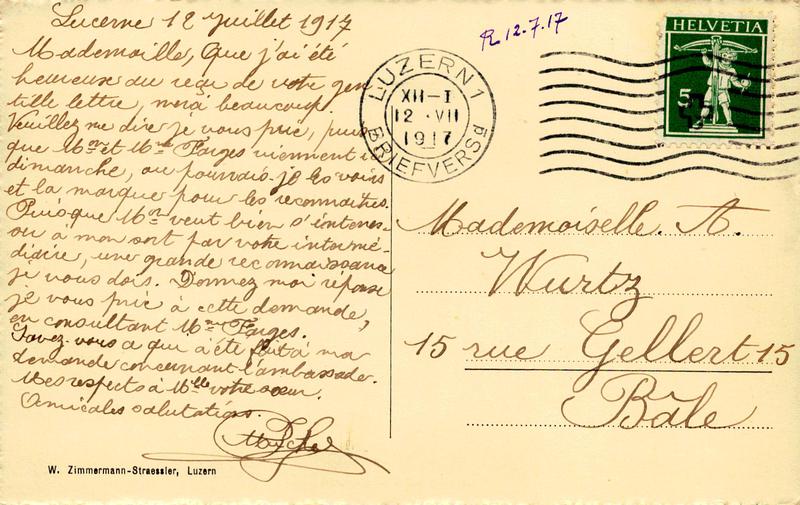 Lucerne 12 Juillet 1917
Mademoille, Que j'ai été
heureuse au reçu de votre gen
tille lettre, merci beaucoup.
Veuillez me dire je vous prie, puis
que Mr et Mme Farges viennent ici
dimanche, ou pourrais-je les voirs
et la marque pour les reconnaitres.
Puisque Mr veut bien s'interes-
ou à mon sort par votre intermé-
diaire, une grande reconnaissance
je vous dois. Donnez moi réponse
je vous prie à cette demande,
en consultant Mme Farges.
Savez-vous ce qui a été fait à ma
demande concernant l'ambassade.
Mes respects à Mlle votre sœur.
Amicales salutations.
W. Zimmermann-Straessler, Luzern
R 12.7.17
LUZERN 1
XII-I
12 · VII
1917
BRIEFVERSd
HELVETIA
5
Mademoiselle. A.
Wurtz
15 rue Gellert 15
Bâle